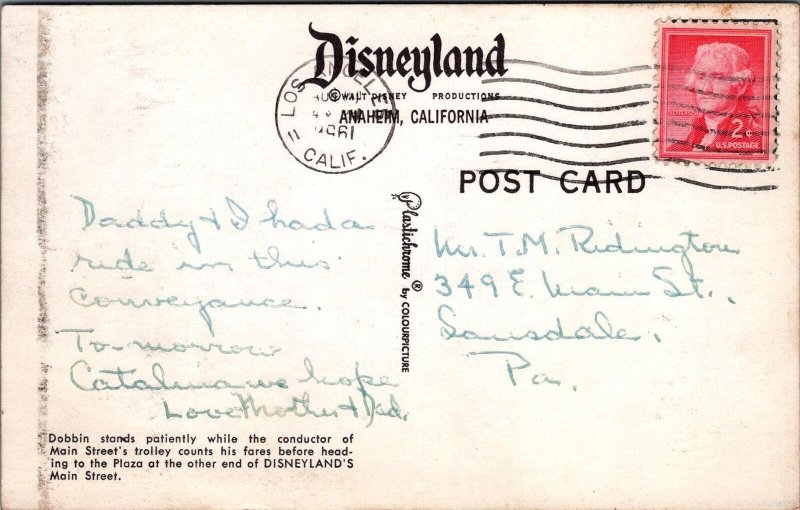 Disneyland
© WALT DISNEY PRODUCTIONS
ANAHEIM, CALIFORNIA
LOS ANGELES
AUG
1961
CALIF.
2¢
U.S. POSTAGE
POST CARD
Daddy & I had a
ride in this
conveyance.
To-morrow
Catalina we hope
Love Mother & Dad.
Plastichrome® by COLOURPICTURE
T.M. Ridington
349 E. Main St.,
Lansdale,
Pa.
Dobbin stands patiently while the conductor of
Main Street's trolley counts his fares before head-
ing to the Plaza at the other end of DISNEYLAND'S
Main Street.